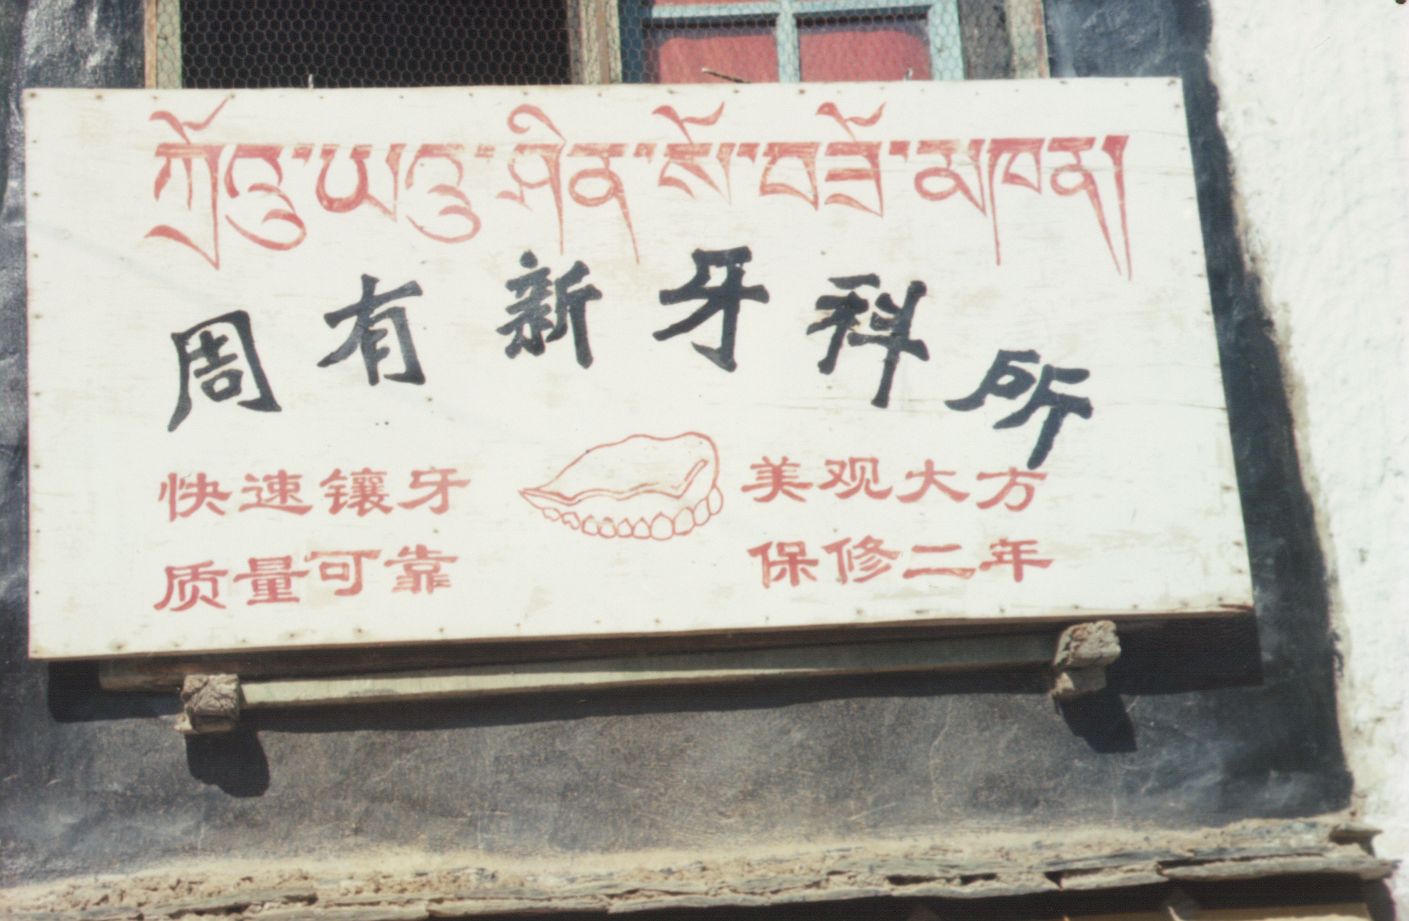 ཀྲོའུ་ཡའུ་ཤིན་སོ་བཟོ་མཁན།
周有新牙科所
快速镶牙 美观大方
质量可靠 保修二年